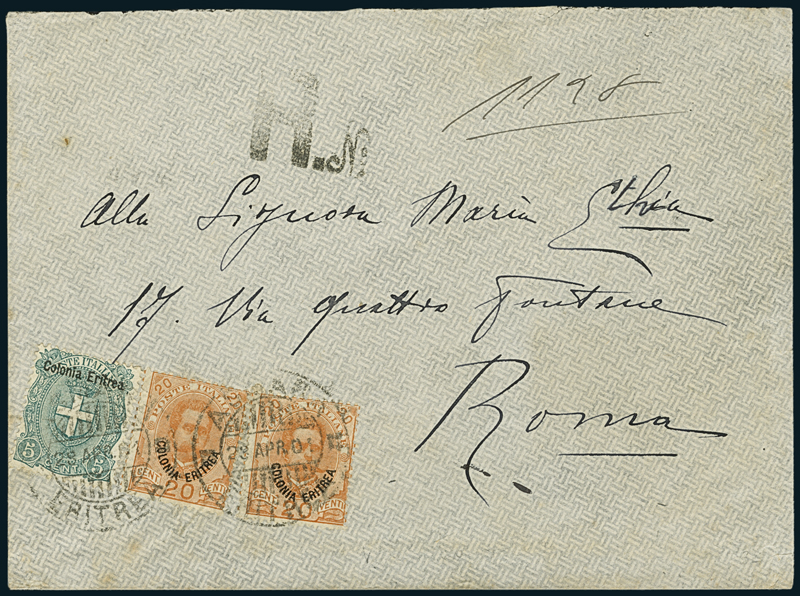 1128
R. N°
Alla Signora Maria
17. Via quattro Fontane
Roma.
POSTE ITALIANE
Colonia Eritrea
5 CENT. 5
20 POSTE ITALIANE 20
COLONIA ERITREA
CENT. 20 CENTI
23 APR 0
20
COLONIA ERITREA
CENTI 20 CENTI
ERITREA